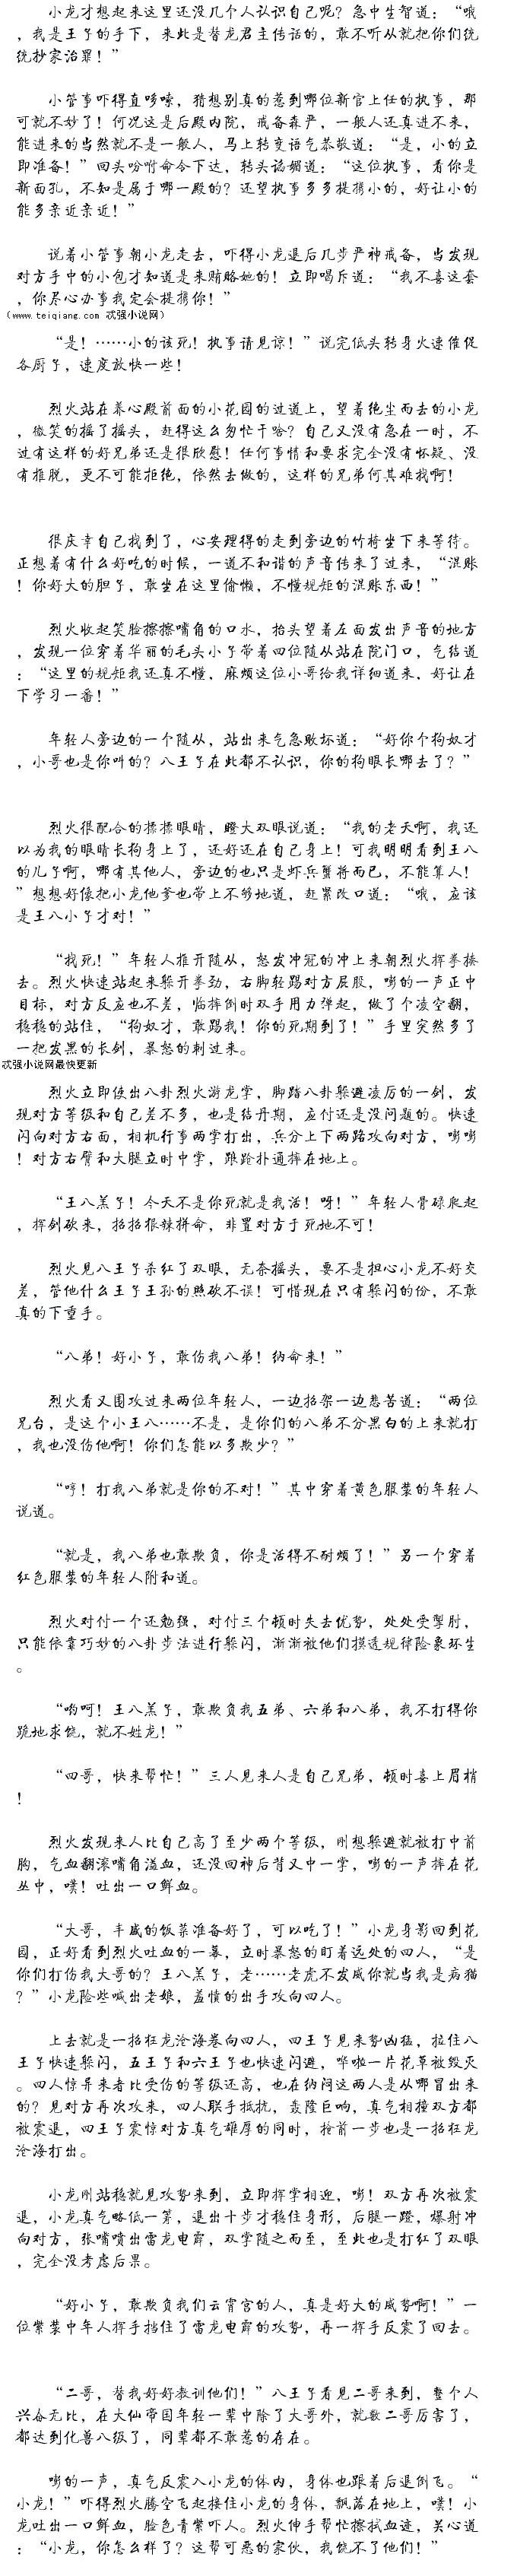 小龙才想起来这里还没几个人认识自己呢？急中生智道：“哦
，我是王子的手下，来此是替龙君主传话的，敢不听从就把你们统
统抄家治罪！”
小管事吓得直哆嗦，猜想别真的惹到哪位新官上任的执事，那
可就不妙了！何况这是后殿内院，戒备森严，一般人还真进不来，
能进来的当然就不是一般人，马上转变语气恭敬道：“是，小的立
即准备！”回头吩咐命令下达，转头谄媚道：“这位执事，看你是
新面孔，不知是属于哪一殿的？还望执事多多提携小的，好让小的
能多亲近亲近！”
说着小管事朝小龙走去，吓得小龙退后几步严神戒备，当发现
对方手中的小包才知道是来贿赂她的！立即喝斥道：“我不喜这套
，你尽心办事我定会提携你！”
（www.teiqiang.com 忒强小说网）
“是！……小的该死！执事请见谅！”说完低头转身火速催促
各厨子，速度放快一些！
烈火站在养心殿前面的小花园的过道上，望着绝尘而去的小龙
，微笑的摇了摇头，赶得这么匆忙干啥？自己又没有急在一时，不
过有这样的好兄弟还是很欣慰！任何事情和要求完全没有怀疑、没
有推脱，更不可能拒绝，依然去做的，这样的兄弟何其难找啊！
很庆幸自己找到了，心安理得的走到旁边的竹椅坐下来等待。
正想着有什么好吃的时候，一道不和谐的声音传来了过来，“混账
！你好大的胆子，敢坐在这里偷懒，不懂规矩的混账东西！”
烈火收起笑脸擦擦嘴角的口水，抬头望着左面发出声音的地方
，发现一位穿着华丽的毛头小子带着四位随从站在院门口，气结道
：“这里的规矩我还真不懂，麻烦这位小哥给我详细道来，好让在
下学习一番！”
年轻人旁边的一个随从，站出来气急败坏道：“好你个狗奴才
，小哥也是你叫的？八王子在此都不认识，你的狗眼长哪去了？”
烈火很配合的揉揉眼睛，瞪大双眼说道：“我的老天啊，我还
以为我的眼睛长狗身上了，还好还在自己身上！可我明明看到王八
的儿子啊，哪有其他人，旁边的也只是虾兵蟹将而已，不能算人！
”想想好像把小龙他爹也带上不够地道，赶紧改口道：“哦，应该
是王八小子才对！”
“找死！”年轻人推开随从，怒发冲冠的冲上来朝烈火挥拳揍
去。烈火快速站起来躲开拳劲，右脚轻踢对方屁股，嘭的一声正中
目标，对方反应也不差，临摔倒时双手用力弹起，做了个凌空翻，
稳稳的站住，“狗奴才，敢踢我！你的死期到了！”手里突然多了
一把发黑的长剑，暴怒的刺过来。
忒强小说网最快更新
烈火立即使出八卦烈火游龙掌，脚踏八卦躲避凌厉的一剑，发
现对方等级和自己差不多，也是结丹期，应付还是没问题的。快速
闪向对方右面，相机行事两掌打出，兵分上下两路攻向对方，嘭嘭
！对方右臂和大腿立时中掌，踉跄扑通摔在地上。
“王八羔子！今天不是你死就是我活！呀！”年轻人骨碌爬起
，挥剑砍来，招招狠辣拼命，非置对方于死地不可！
烈火见八王子杀红了双眼，无奈摇头，要不是担心小龙不好交
差，管他什么王子王孙的照砍不误！可惜现在只有躲闪的份，不敢
真的下重手。
“八弟！好小子，敢伤我八弟！纳命来！”
烈火看又围攻过来两位年轻人，一边招架一边悲苦道：“两位
兄台，是这个小王八……不是，是你们的八弟不分黑白的上来就打
，我也没伤他啊！你们怎能以多欺少？”
“哼！打我八弟就是你的不对！”其中穿着黄色服装的年轻人
说道。
“就是，我八弟也敢欺负，你是活得不耐烦了！”另一个穿着
红色服装的年轻人附和道。
烈火对付一个还勉强，对付三个顿时失去优势，处处受掣肘，
只能依靠巧妙的八卦步法进行躲闪，渐渐被他们摸透规律险象环生
。
“哟呵！王八羔子，敢欺负我五弟、六弟和八弟，我不打得你
跪地求饶，就不姓龙！”
“四哥，快来帮忙！”三人见来人是自己兄弟，顿时喜上眉梢
！
烈火发现来人比自己高了至少两个等级，刚想躲避就被打中前
胸，气血翻滚嘴角溢血，还没回神后背又中一掌，嘭的一声摔在花
丛中，噗！吐出一口鲜血。
“大哥，丰盛的饭菜准备好了，可以吃了！”小龙身影回到花
园，正好看到烈火吐血的一幕，立时暴怒的盯着远处的四人，“是
你们打伤我大哥的？王八羔子，老……老虎不发威你就当我是病猫
？”小龙险些喊出老娘，羞愤的出手攻向四人。
上去就是一招狂龙沧海卷向四人，四王子见来势凶猛，拉住八
王子快速躲闪，五王子和六王子也快速闪避，哗啦一片花草被毁灭
。四人惊异来者比受伤的等级还高，也在纳闷这两人是从哪冒出来
的？见对方再次攻来，四人联手抵抗，轰隆巨响，真气相撞双方都
被震退，四王子震惊对方真气雄厚的同时，抢前一步也是一招狂龙
沧海打出。
小龙刚站稳就见攻势来到，立即挥掌相迎，嘭！双方再次被震
退，小龙真气略低一筹，退出十步才稳住身形，后腿一蹬，爆射冲
向对方，张嘴喷出雷龙电霹，双掌随之而至，至此也是打红了双眼
，完全没考虑后果。
“好小子，敢欺负我们云霄宫的人，真是好大的威势啊！”一
位紫装中年人挥手挡住了雷龙电霹的攻势，再一挥手反震了回去。
“二哥，替我好好教训他们！”八王子看见二哥来到，整个人
兴奋无比，在大仙帝国年轻一辈中除了大哥外，就数二哥厉害了，
都达到化兽八级了，同辈都不敢惹的存在。
嘭的一声，真气反震入小龙的体内，身体也跟着后退倒飞。“
小龙！”吓得烈火腾空飞起接住小龙的身体，飘落在地上，噗！小
龙吐出一口鲜血，脸色青紫吓人。烈火伸手帮忙擦拭血迹，关心道
：“小龙，你怎么样了？这帮可恶的家伙，我饶不了他们！”